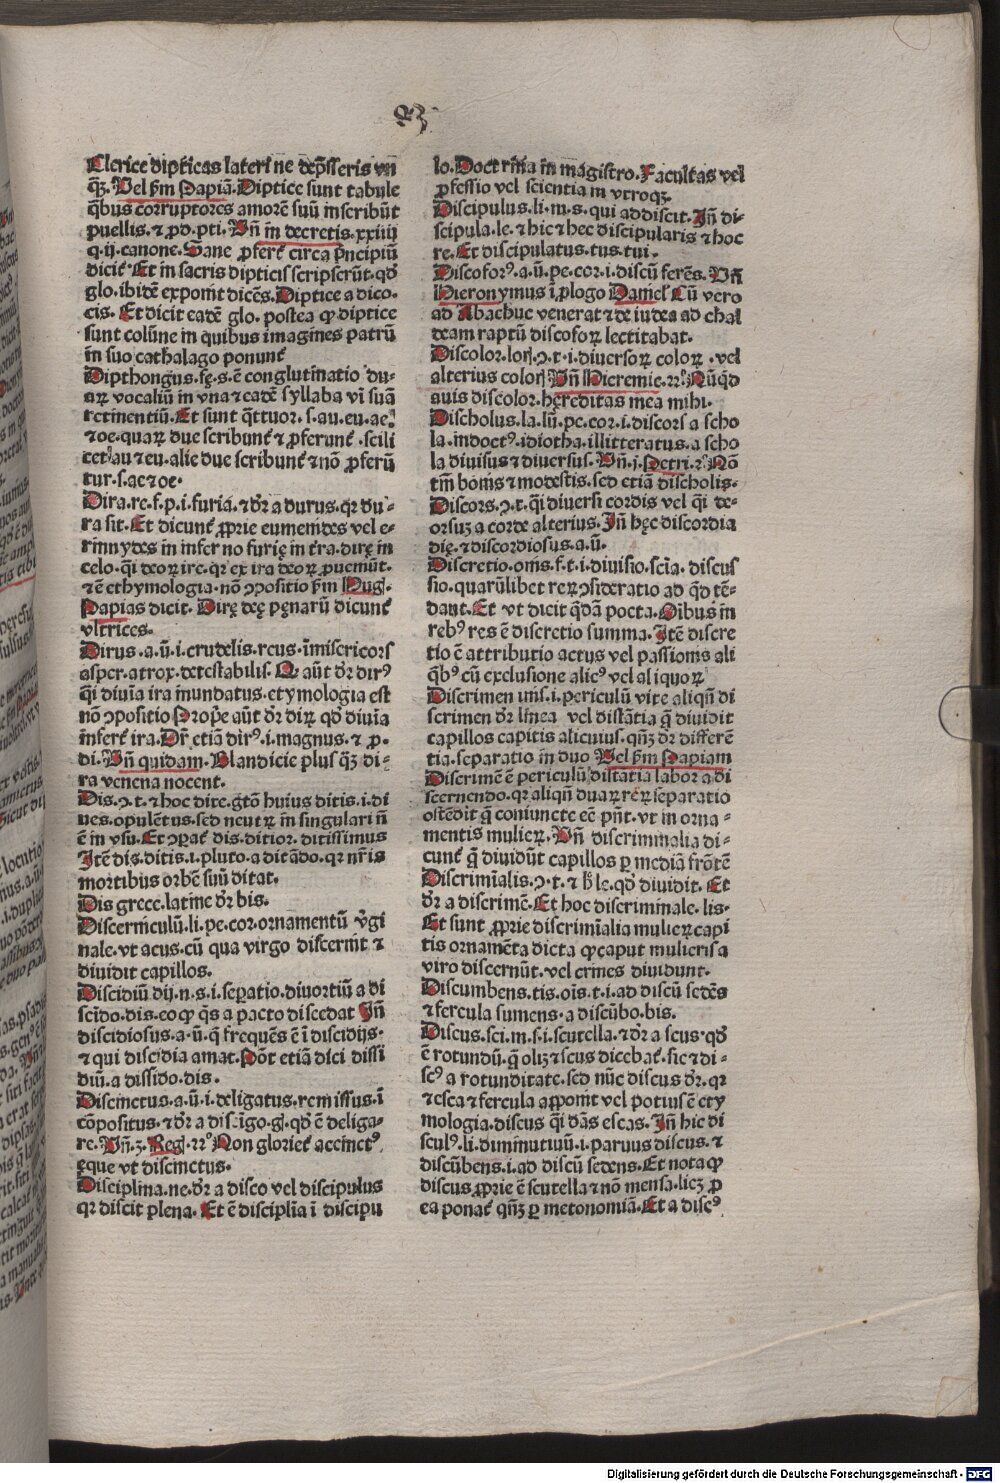 Clerice dipticas lateri ne dep̃sseris vn̄
q̃ꝫ. Vel ẜm Papiā. Diptice sunt tabule
q̃bus corruptores amorē suū inscribūt
puellis. ⁊ ꝓd. pti. Vn̄ in decretis. xxiiii
q. ij. canone. Sane ꝓfert̄ circa p̃ncipiū
dicit̄ Et in sacris dipticis scripserūt. qd̓
glo. ibidē exponit dicēs. Diptice a dico.
cis. Et dicit eadē glo. postea ꝙ diptice
sunt colūne in quibus imagines patrū
in suo cathalago ponunt̄
Dipthongus. fę. s. ē conglutinatio du-
aꝝ vocaliū in vna ⁊ eadē syllaba vī suā
retinentiū. Et sunt q̄ttuor. s. au. eu. ae.
⁊ oe. quaꝝ due scribunt̄ ⁊ ꝓferunt̄. scili
cet au ⁊ eu. alie due scribunt̄ ⁊ nō ꝓferū
tur. s. ae ⁊ oe.
Dira. re. f. p. i. furia. ⁊ dr̄ a durus. qr du-
ra sit. Et dicunt̄ ꝓprie eumenides vel e-
rinnydes in inferno furię in t̄ra. dirę in
celo. q̄i deoꝝ irę. qr ex ira deoꝝ ꝓueniūt.
⁊ ē ethymologia. nō ꝯpositio ẜm Hug.
Papias dicit. Dirę deę pęnarū dicunt̄
vltrices.
Dirus. a. ū. i. crudelis. reus. īmisericors
asper. atrox. detestabilis. Et aūt dr̄ dirꝰ
q̄i diuīa ira inundatus. etymologia est
nō ꝯpositio Prope aūt dr̄ dirꝰ qd̓ diuīa
infert̄ ira. Dr̄ etiā dirꝰ. i. magnus. ⁊ ꝓ.
di. Vn̄ quidam. Blandicie plus q̃ꝫ di-
ra venena nocent.
Dis. ꝯ. t. ⁊ hoc dite. gt̄o huius ditis. i. di
ues. opulētus. sed neutꝝ in singulari n̄
ē in vsu. Et ꝯpat̄ dis. ditior. ditissimus
Itē dis. ditis. i. pluto. a ditādo. qr nr̄is
mortibus orbē suū ditat.
Dis grece. latine dr̄ bis.
Discerniculū. li. pe. cor. ornamentū v̓gi
nale. vt acus. cū qua virgo discernit ⁊
diuidit capillos.
Discidiū dij. n. s. i. sepatio. diuortiū a di
scido. dis. eo ꝙ q̄s a pacto discedat Jn̄
discidiosus. a. ū. q̄ frequēs ē i discidijs.
⁊ qui discidia amat. Pōt etiā dici dissi
diū. a dissido. dis.
Discinctus. a. ū. i deligatus. remissus. ī
cōpositus. ⁊ dr̄ a discīgo. gꝭ. qd̓ ē deliga-
re. Vn̄. 3. Regꝭ. 22° Non gloriet̄ accinctꝰ
ęque vt discinctus.
Disciplina. ne. dr̄ a disco vel discipulus
qr discit plena. Et ē disciplia ī discipu
lo. Doctrīna in magistro. Facultas vel
ꝓfessio vel scientia in vtroqꝫ.
Discipulus. li. m. s. qui addiscit. Jn̄ di-
scipula. le. ⁊ hic ⁊ hec discipularis ⁊ hoc
re. Et discipulatus. tus. tui.
Discoforꝰ. a. ū. pe. cor. i. discū ferēs. Vn̄
Hieronymus ī ꝓlogo Daniel̄ Cū vero
ad Abachuc venerat ⁊ de iudea ad chal
deam raptū discofoꝝ lectitabat.
Discolor. lorꝭ. ꝯ. t. i. diuersoꝝ coloꝝ. vel
alterius colorꝭ Vn̄ Hieremie. 12° Nūqd̓
auis discolor. hęreditas mea mihi.
Discholus. la. lū. pe. cor. i. discors a scho
la. indoctꝰ. idiotha. illitteratus. a scho
la diuisus ⁊ diuersus. Vn̄. j. Petri. 2° Nō
tm̄ bonis ⁊ modestis. sed etiā discholis.
Discors. ꝯ. t. q̄i diuersi cordis vel q̄i de-
orsuꝫ a corde alterius. Jn̄ hęc discordia
dię. ⁊ discordiosus. a. ū.
Discretio. onis. f. t. i. diuisio. scīa. discus
sio. quarūlibet reꝝ ꝯsideratio ad qd̓ tē-
dant. Et vt dicit q̄dā poeta. Oībus in
rebꝰ res ē discretio summa. Itē discre
tio ē attributio actus vel passionis ali
q̄bꝰ cū exclusione alicꝰ vel aliquoꝝ
Discrimen inis. i. periculū vite aliqn̄ di
scrimen dr̄ linea vel distātia q̄ diuidit
capillos capitis alicuius. qn̄ꝫ dr̄ differē
tia. separatio in duo Vel ẜm Papiam
Discrimē ē periculū distātia labor a di
scernendo. qr aliqn̄ duaꝝ reꝝ separatio
ostēdit q̄ coniuncte eē pn̄t. vt in orna-
mentis mulieꝝ. Vn̄ discriminalia di-
cunt̄ q̄ diuidūt capillos ꝑ mediā frōtē
Discrimīalis. ꝯ. t. ⁊ h̓ le. qd̓ diuidit. Et
dr̄ a discrimē. Et hoc discriminale. lis.
Et sunt ꝓprie discrimialia mulieꝝ capi
tis ornamēta dicta ꝙ caput mulieris a
viro discernūt. vel crines diuidunt.
Discumbens. tis. oīs. t. i. ad discū sedēs
⁊ fercula sumens. a discūbo. bis.
Discus. sci. m. s. i. scutella. ⁊ dr̄ a scus. qd̓
ē rotundū. q̄ oliꝫ scus dicebat̄. sic ⁊ di-
scꝰ a rotunditate. sed nūc discus dr̄. qr
⁊ esca ⁊ fercula apponit vel potius ē ety
mologia. discus q̄i dās escas. Jn̄ hic di
sculꝰ. li. diminutiuū. i. paruus discus. ⁊
discūbens. i. ad discū sedens. Et nota ꝙ
discus ꝓprie ē scutella ⁊ nō mensa. licꝫ ꝓ
ea ponat̄ qn̄ꝫ ꝑ metonomiā. Et a discꝰ
Digitalisierung gefördert durch die Deutsche Forschungsgemeinschaft - DFG